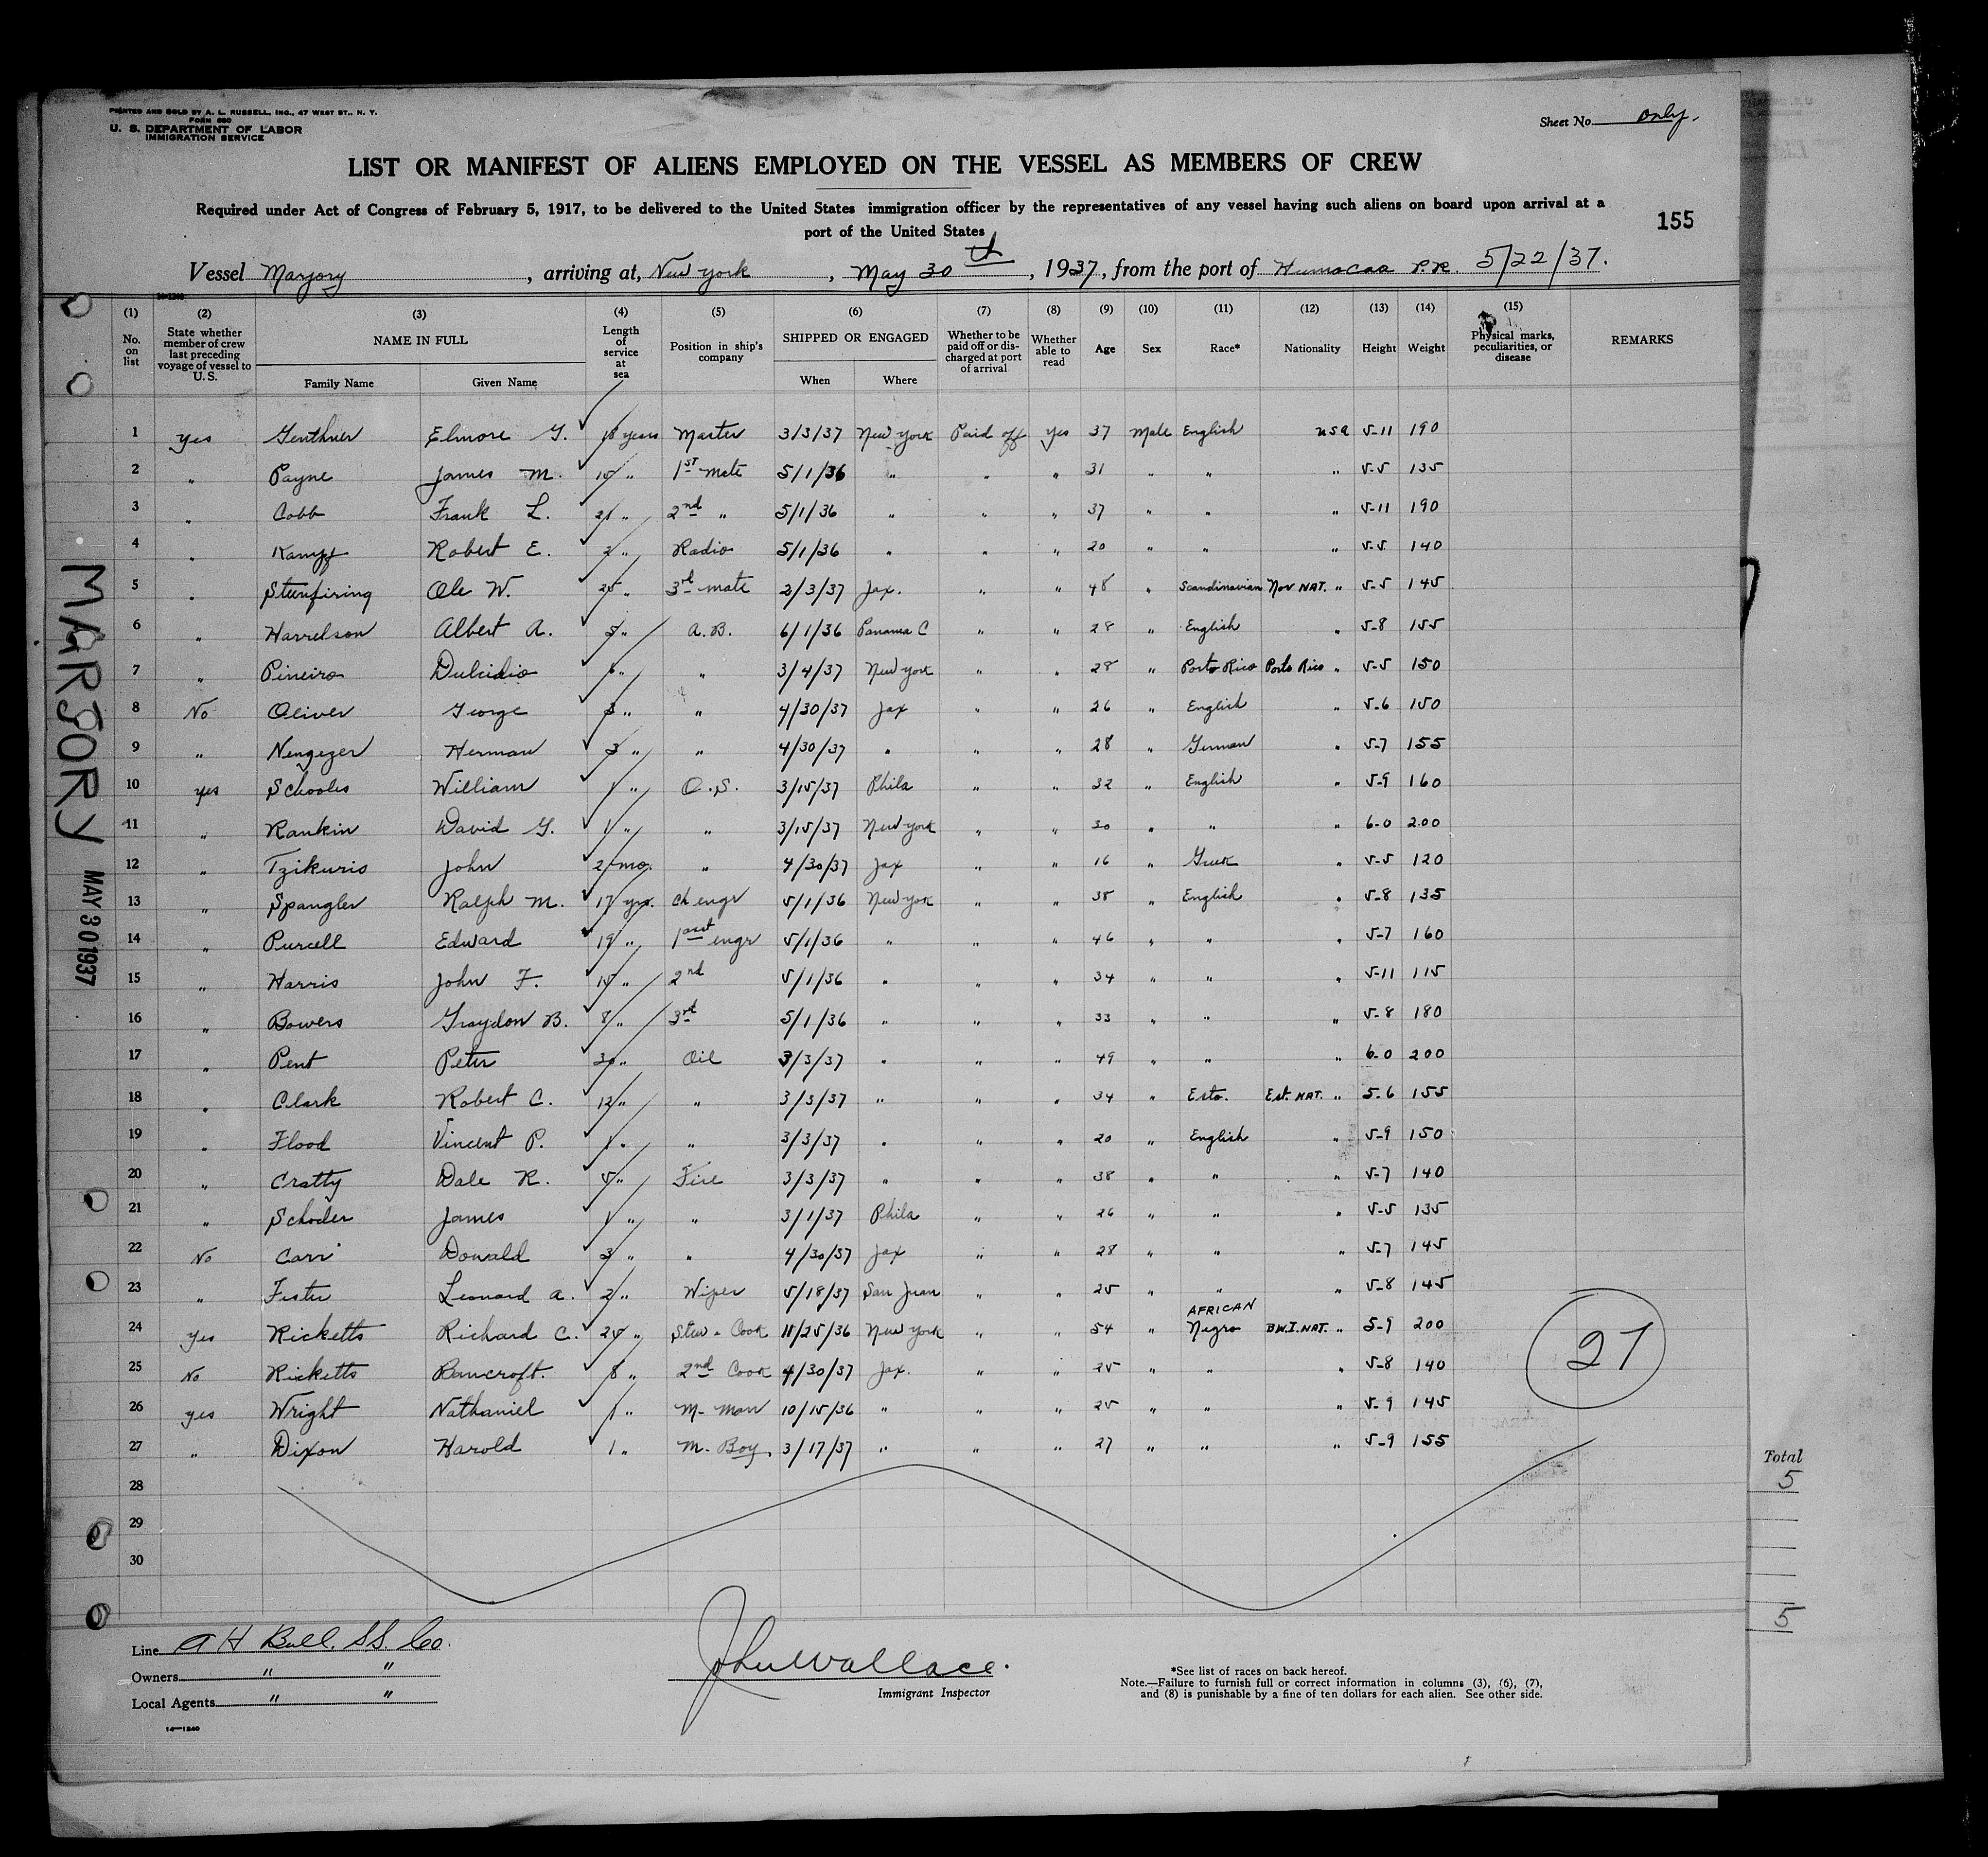 PRINTED AND SOLD BY A. L. RUSSELL, INC., 47 WEST ST., N. Y.
FORM 680
U. S. DEPARTMENT OF LABOR
IMMIGRATION SERVICE
Sheet No. only.
LIST OR MANIFEST OF ALIENS EMPLOYED ON THE VESSEL AS MEMBERS OF CREW
Required under Act of Congress of February 5, 1917, to be delivered to the United States immigration officer by the representatives of any vessel having such aliens on board upon arrival at a
port of the United States
155
Vessel Marjory, arriving at, New York, May 30th, 1937, from the port of Humacao P.R. 5/22/37.
(1) (2) (3) (4) (5) (6) (7) (8) (9) (10) (11) (12) (13) (14) (15)
No. on list State whether member of crew last preceding voyage of vessel to U. S. NAME IN FULL Length of service at sea Position in ship's company SHIPPED OR ENGAGED Whether to be paid off or discharged at port of arrival Whether able to read Age Sex Race* Nationality Height Weight Physical marks, peculiarities, or disease REMARKS
Family Name Given Name When Where
1 yes Genthner Elmore G. 18 years Master 3/3/37 New York Paid off yes 37 Male English USA 5-11 190
2 " Payne James M. 15 " 1st mate 5/1/36 " " " 31 " " " 5-5 135
3 " Cobb Frank L. 21 " 2nd " 5/1/36 " " " 37 " " " 5-11 190
4 " Kampf Robert E. 2 " Radio 5/1/36 " " " 20 " " " 5-5 140
5 " Steenfiring Ole W. 25 " 3rd mate 2/3/37 Jax. " " 48 " Scandinavian Nor NAT. " 5-5 145
6 " Harrelson Albert A. 5 " A.B. 6/1/36 Panama C " " 28 " English " 5-8 155
7 " Pineiro Dulcidio 6 " " 3/4/37 New York " " 28 " Porto Rico Porto Rico " 5-5 150
8 No Oliver George 3 " " 4/30/37 Jax " " 26 " English " 5-6 150
9 " Nengezer Herman 3 " " 4/30/37 " " " 28 " German " 5-7 155
10 yes Schooles William 1 " O.S. 3/15/37 Phila " " 32 " English " 5-9 160
11 " Rankin David G. 1 " " 3/15/37 New York " " 30 " " " 6-0 200
12 " Tzikuris John 2 mo. " 4/30/37 Jax " " 16 " Greek " 5-5 120
13 " Spangler Ralph M. 17 yrs. Ch engr 5/1/36 New York " " 38 " English " 5-8 135
14 " Purcell Edward 19 " 1st asst engr 5/1/36 " " " 46 " " " 5-7 160
15 " Harris John F. 15 " 2nd 5/1/36 " " " 34 " " " 5-11 115
16 " Bowers Graydon B. 8 " 3rd 5/1/36 " " " 33 " " " 5-8 180
17 " Pent Peter 30 " Oil 3/3/37 " " " 49 " " " 6-0 200
18 " Clark Robert C. 12 " " 3/3/37 " " " 34 " Esto. Est. NAT. " 5-6 155
19 " Flood Vincent P. 1 " " 3/3/37 " " " 20 " English " 5-9 150
20 " Cratty Dale R. 5 " Fire 3/3/37 " " " 38 " " " 5-7 140
21 " Schoder James 1 " " 3/1/37 Phila " " 26 " " " 5-5 135
22 No Carr Donald 3 " " 4/30/37 Jax " " 28 " " " 5-7 145
23 " Fester Leonard A. 2 " Wiper 5/18/37 San Juan " " 25 " " " 5-8 145
AFRICAN
24 yes Ricketts Richard C. 25 " Stew - Cook 11/25/36 New York " " 54 " Negro B.W.I. NAT. " 5-9 200
25 No Ricketts Bancroft. 8 " 2nd Cook 4/30/37 Jax. " " 25 " " " 5-8 140
26 yes Wright Nathaniel 1 " M-man 10/15/36 " " " 25 " " " 5-9 145
27 " Dixon Harold 1 " M-Boy. 3/17/37 " " " 27 " " " 5-9 155
28
29
30
27
MARJORY MAY 30 1937
Total
5
5
Line A H Bull. S.S. Co.
Owners " "
Local Agents " "
14—1240
John Wallace.
Immigrant Inspector
*See list of races on back hereof.
Note.—Failure to furnish full or correct information in columns (3), (6), (7),
and (8) is punishable by a fine of ten dollars for each alien. See other side.